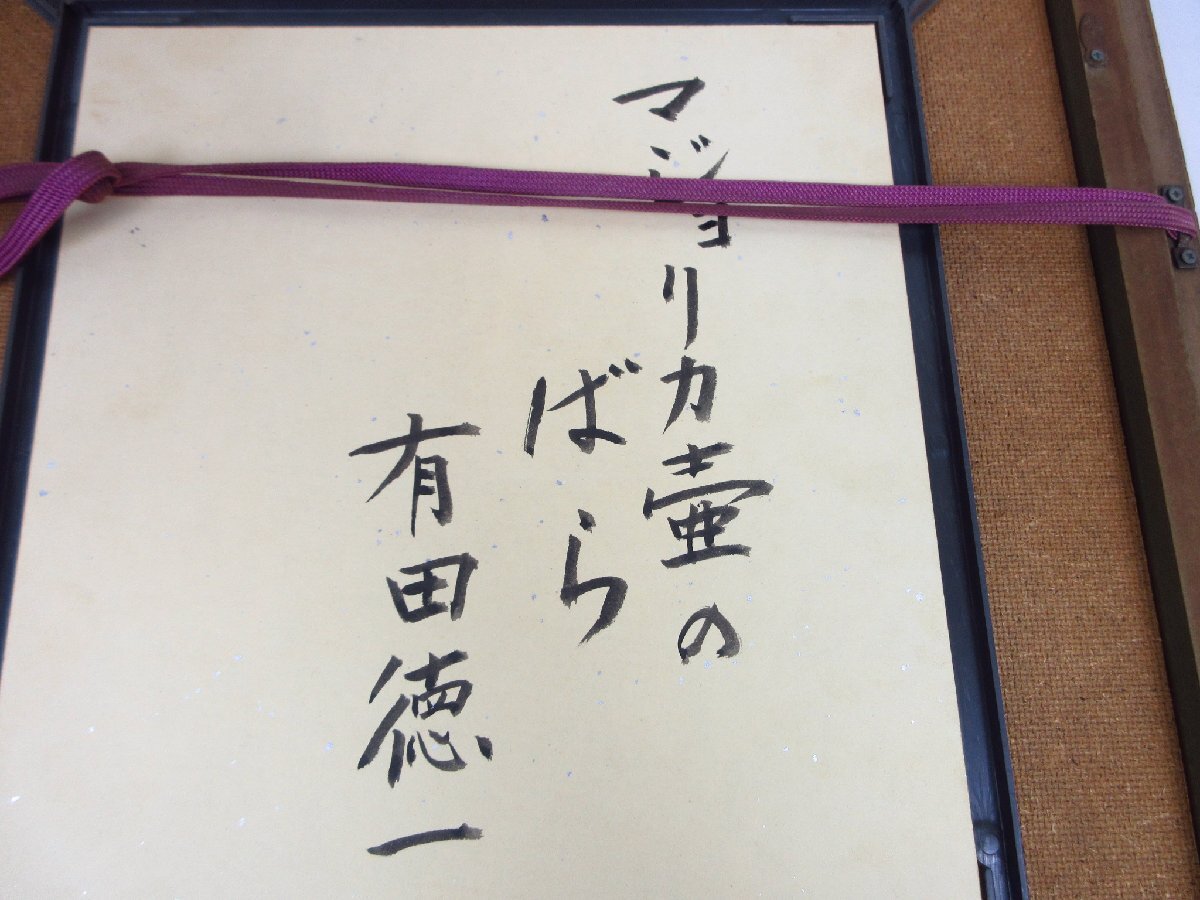 マジョリカ壷の
ばら
有田徳一